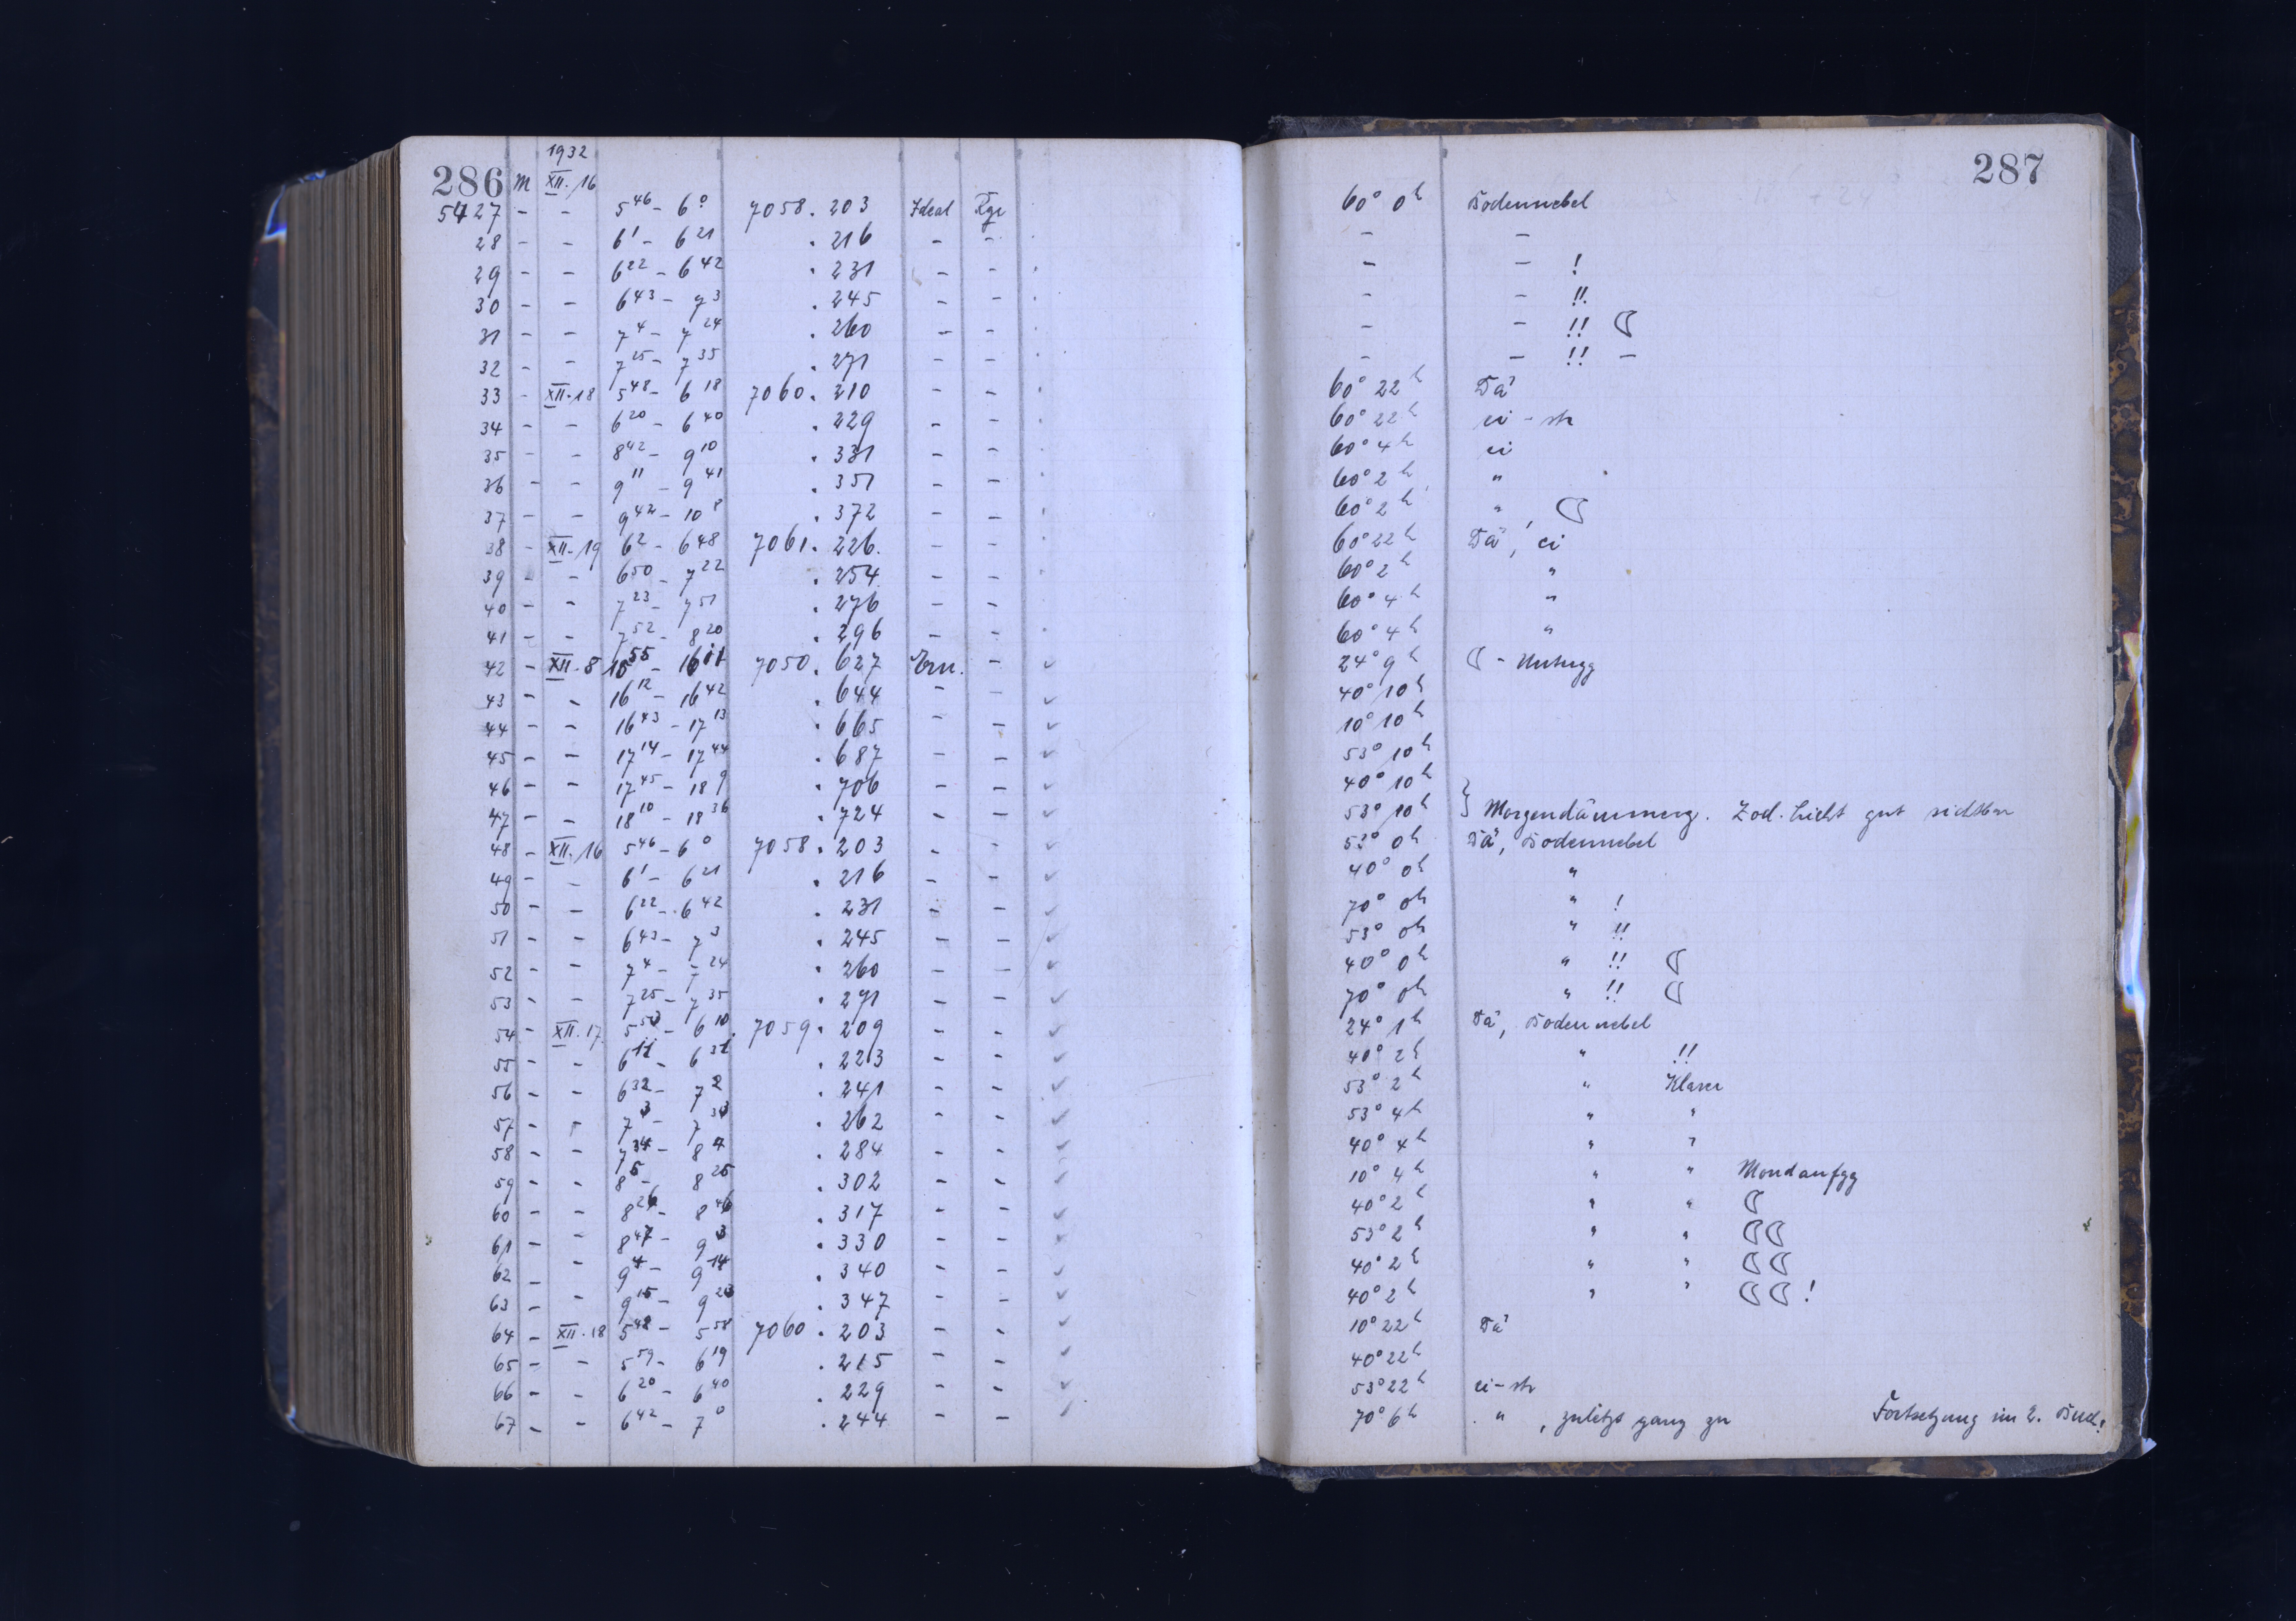 1932
286 M XII.16 287
5427 - - 5 46 - 6 0 7058.203 Ideal Rge 60° 0h Bodennebel
28 - - 6 1 - 6 21 .216 - - - -
29 - - 6 22 - 6 42 .231 - - - - !
30 - - 6 43 - 7 3 .245 - - - - !!
31 - - 7 4 - 7 24 .260 - - - - !! ☾
32 - - 7 25 - 7 35 .271 - - - - !! -
33 - XII.18 5 48 - 6 18 7060.210 - - 60° 22h Dä
34 - - 6 20 - 6 40 .229 - - 60° 22h ci - str
35 - - 8 42 - 9 10 .331 - - 60° 4h ci
36 - - 9 11 - 9 41 .351 - - 60° 2h "
37 - - 9 42 - 10 8 .372 - - 60° 2h " ☾
38 - XII.19 6 2 - 6 48 7061.226. - - 60° 22h Dä!, ci
39 - - 6 50 - 7 22 .254 - - 60° 2h "
40 - - 7 23 - 7 51 .276 - - 60° 4h "
41 - - 7 52 - 8 20 .296 - - 60° 4h "
42 - XII.8 15 55 - 16 11 7050.627 Ern. - ✓ 24° 9h ☾ - Untergg
43 - - 16 12 - 16 42 .644 - - ✓ 40° 10h
44 - - 16 43 - 17 13 .665 - - ✓ 10° 10h
45 - - 17 14 - 17 44 .687 - - ✓ 53° 10h
46 - - 17 45 - 18 9 .706 - - ✓ 40° 10h
47 - - 18 10 - 18 36 .724 - - ✓ 53° 10h } Morgendämmerg. Zod. Licht gut sichtbar
48 - XII.16 5 46 - 6 0 7058.203 - - ✓ 53° 0h Dä, Bodennebel
49 - - 6 1 - 6 21 .216 - - ✓ 40° 0h "
50 - - 6 22 - 6 42 .231 - - ✓ 70° 0h " !
51 - - 6 43 - 7 3 .245 - - ✓ 53° 0h " !!
52 - - 7 4 - 7 24 .260 - - ✓ 40° 0h " !! ☾
53 - - 7 25 - 7 35 .271 - - ✓ 70° 0h " !! ☾
54 - XII.17 5 50 - 6 10 7059.209 - - ✓ 24° 1h Dä, Bodennebel
55 - - 6 11 - 6 31 .223 - - ✓ 40° 2h " !!
56 - - 6 32 - 7 2 .241 - - ✓ 53° 2h " Klarer
57 - - 7 3 - 7 33 .262 - - ✓ 53° 4h " "
58 - - 7 34 - 8 4 .284 - - ✓ 40° 4h " "
59 - - 8 5 - 8 25 .302 - - ✓ 10° 4h " " Mondaufgg
60 - - 8 26 - 8 46 .317 - - ✓ 40° 2h " " ☾
61 - - 8 47 - 9 3 .330 - - ✓ 53° 2h " " ☾☾
62 - - 9 4 - 9 14 .340 - - ✓ 40° 2h " " ☾☾
63 - - 9 15 - 9 23 .347 - - ✓ 40° 2h " " ☾☾!
64 - XII.18 5 48 - 5 58 7060.203 - - ✓ 10° 22h Dä
65 - - 5 59 - 6 19 .215 - - ✓ 40° 22h
66 - - 6 20 - 6 40 .229 - - ✓ 53° 22h ci - str
67 - - 6 42 - 7 0 .244 - - ✓ 70° 6h " , zuletzt ganz zu Fortsetzung im 2. Buch.